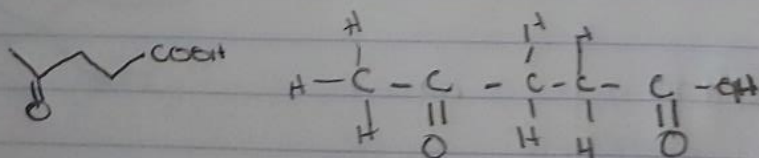 COOH
O
H H H
H-C-C-C-C-C-OH
H || H H ||
O O